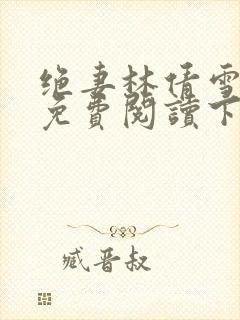 绝妻林倩雪
免費閱讀下
臧晋叔